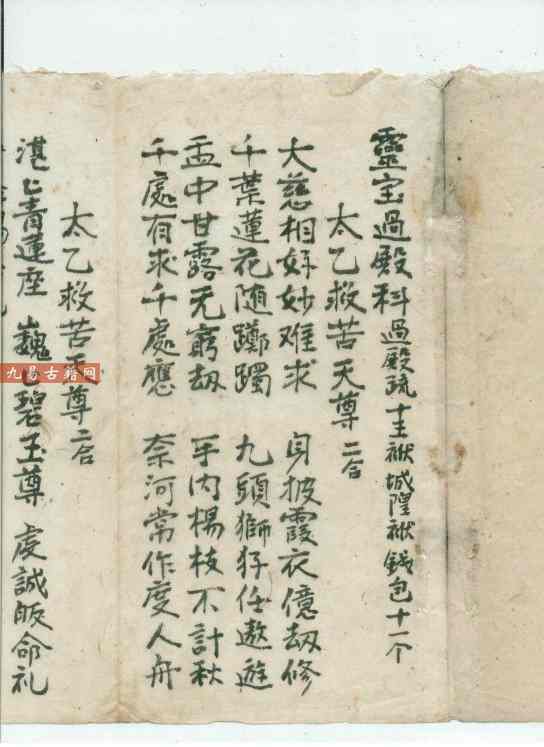 靈宝過殿科 過殿疏十王狀城隍狀錢包十一个
太乙救苦天尊 二合
大慈相好妙难求 身披霞衣億劫修
千葉蓮花随躑躅 九頭獅犼任遨遊
盂中甘露无窮劫 手内楊枝不計秋
千處有求千處應 奈河常作度人舟
太乙救苦天尊 二合
湛〻青蓮座 巍〻碧玉尊 虔誠皈命礼
九易古籍网